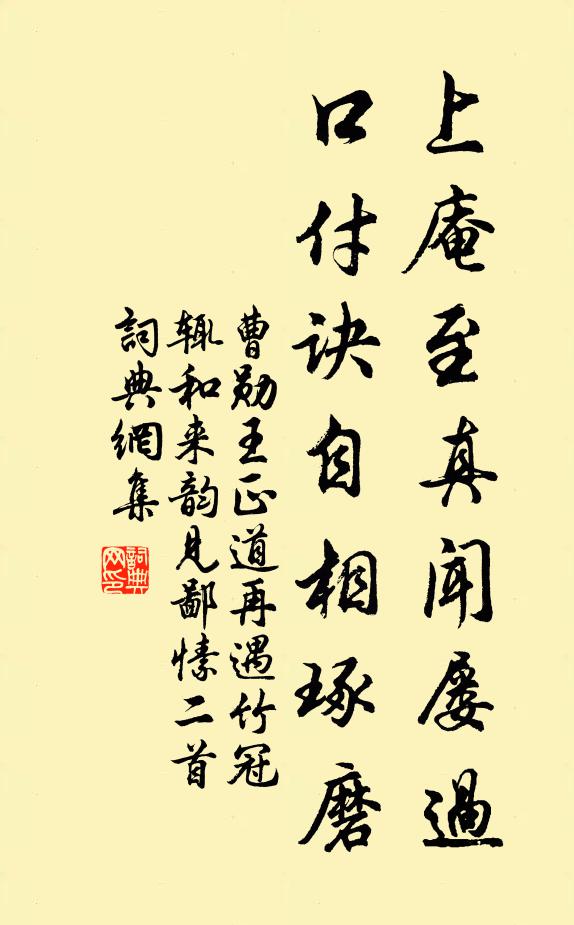 上庵至真闻屡過
口付诀自相琢磨
曹勋王正道再遇竹冠
辄和来韵见鄙愫二首
詞典網集
詞典
网印